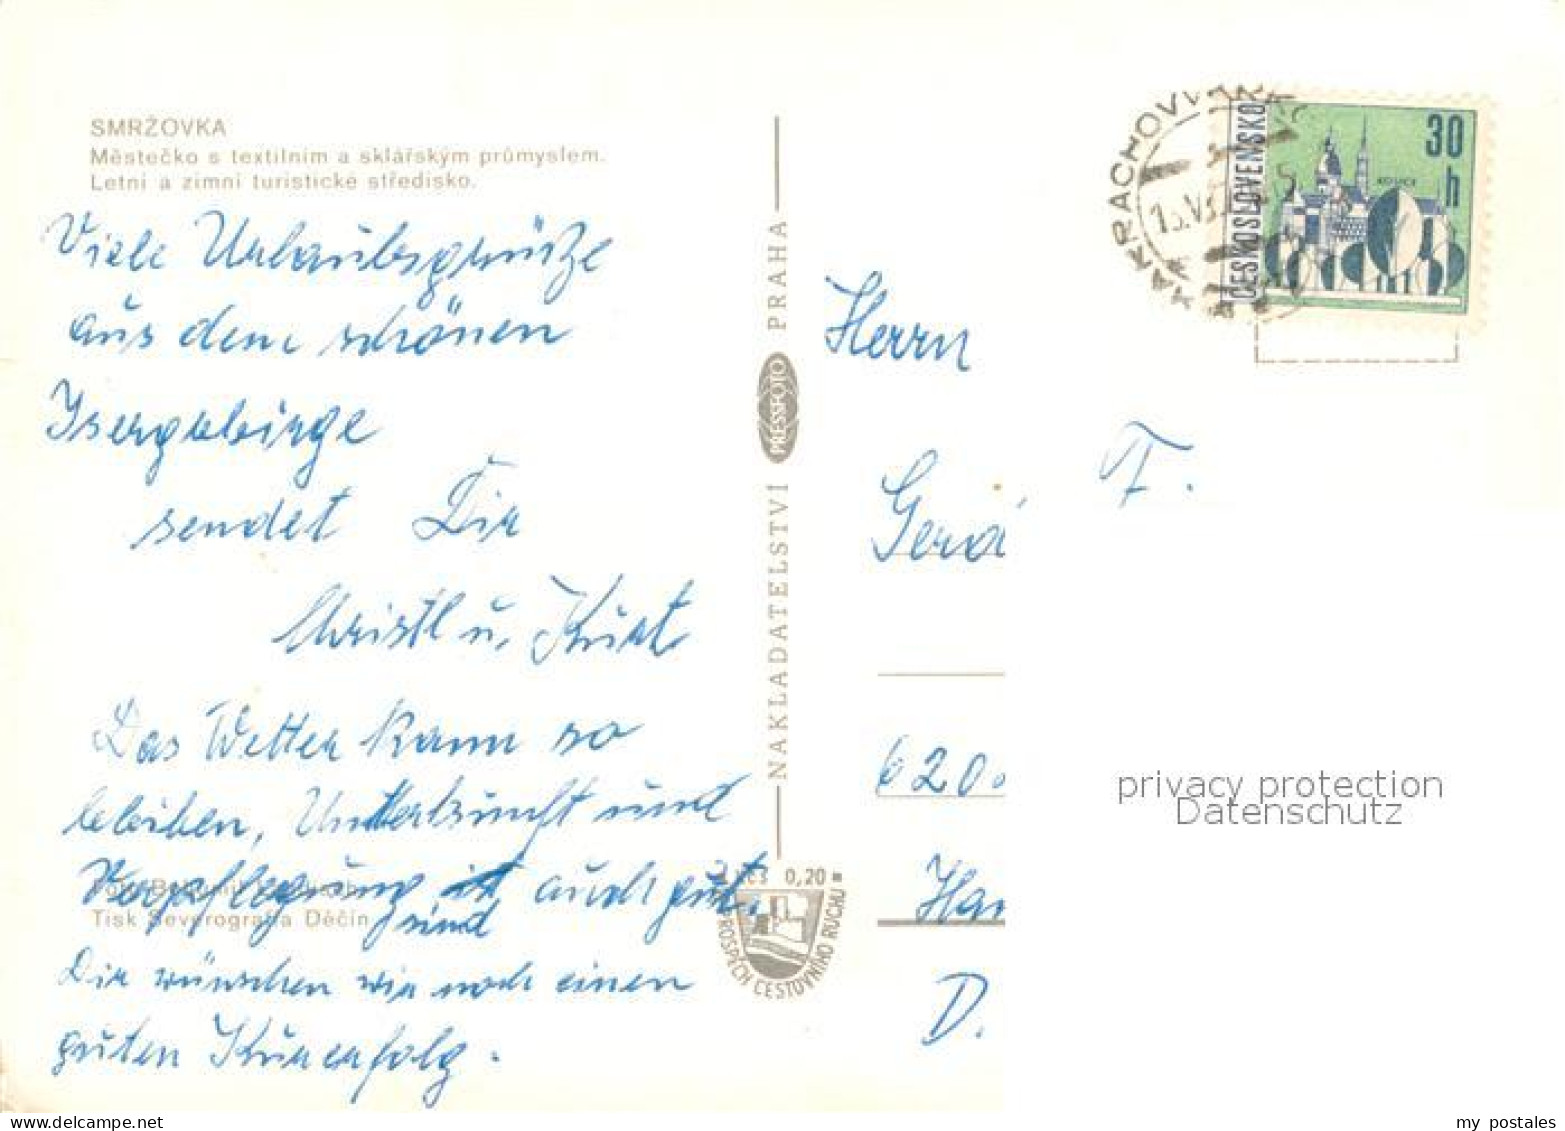 SMRŽOVKA
Městečko s textilním a sklářským průmyslem.
Letní a zimní turistické středisko.
Viele Urlaubsgrüße
aus dem schönen
Isergebirge
sendet Dir
Christl u. Kurt
Das Wetter kann so
bleiben, Unterkunft und
Verpflegung ist auch gut.
sind
Dir wünschen wir noch einen
guten Kurerfolg.
Tisk Severografia Děčín
NAKLADATELSTVÍ PRESSFOTO PRAHA
Kčs 0,20
PROSPĚCH CESTOVNÍHO RUCHU
HARRACHOV
ČESKOSLOVENSKO
30
h
Herrn
F.
620
D.
privacy protection
Datenschutz
my postales